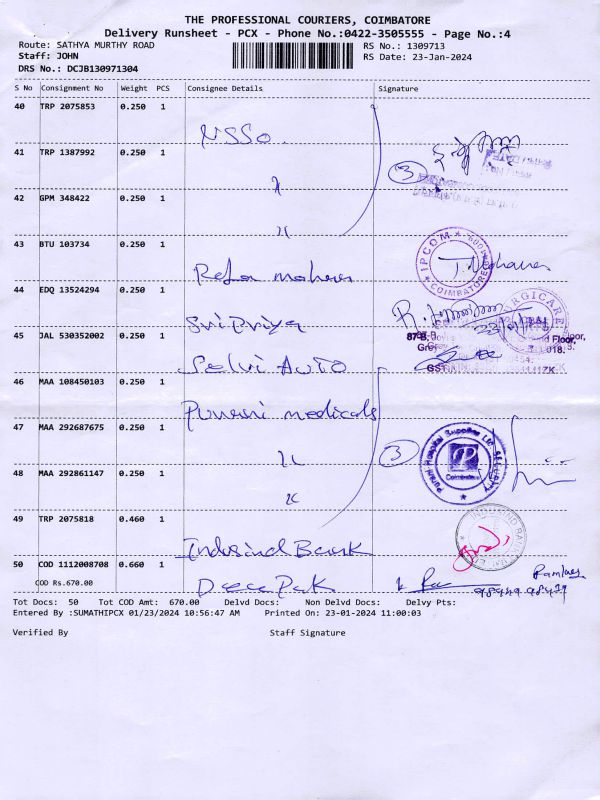 THE PROFESSIONAL COURIERS, COIMBATORE
Delivery Runsheet - PCX - Phone No.:0422-3505555 - Page No.:4
Route: SATHYA MURTHY ROAD RS No.: 1309713
Staff: JOHN RS Date: 23-Jan-2024
DRS No.: DCJB130971304
S No Consignment No Weight PCS Consignee Details Signature
40 TRP 2075853 0.250 1
NSSO
41 TRP 1387992 0.250 1
3
42 GPM 348422 0.250 1
43 BTU 103734 0.250 1
IPCOM COIMBATORE
44 EDQ 13524294 0.250 1
Sri Priya
45 JAL 530352002 0.250 1
Selvi Auto
46 MAA 108450103 0.250 1
medicals
47 MAA 292687675 0.250 1
3
48 MAA 292861147 0.250 1
49 TRP 2075818 0.460 1
Indusind Bank
50 COD 1112008708 0.660 1
Deepak
COD Rs.670.00
Tot Docs: 50 Tot COD Amt: 670.00 Delvd Docs: Non Delvd Docs: Delvy Pts:
Entered By :SUMATHIPCX 01/23/2024 10:56:47 AM Printed On: 23-01-2024 11:00:03
Verified By Staff Signature